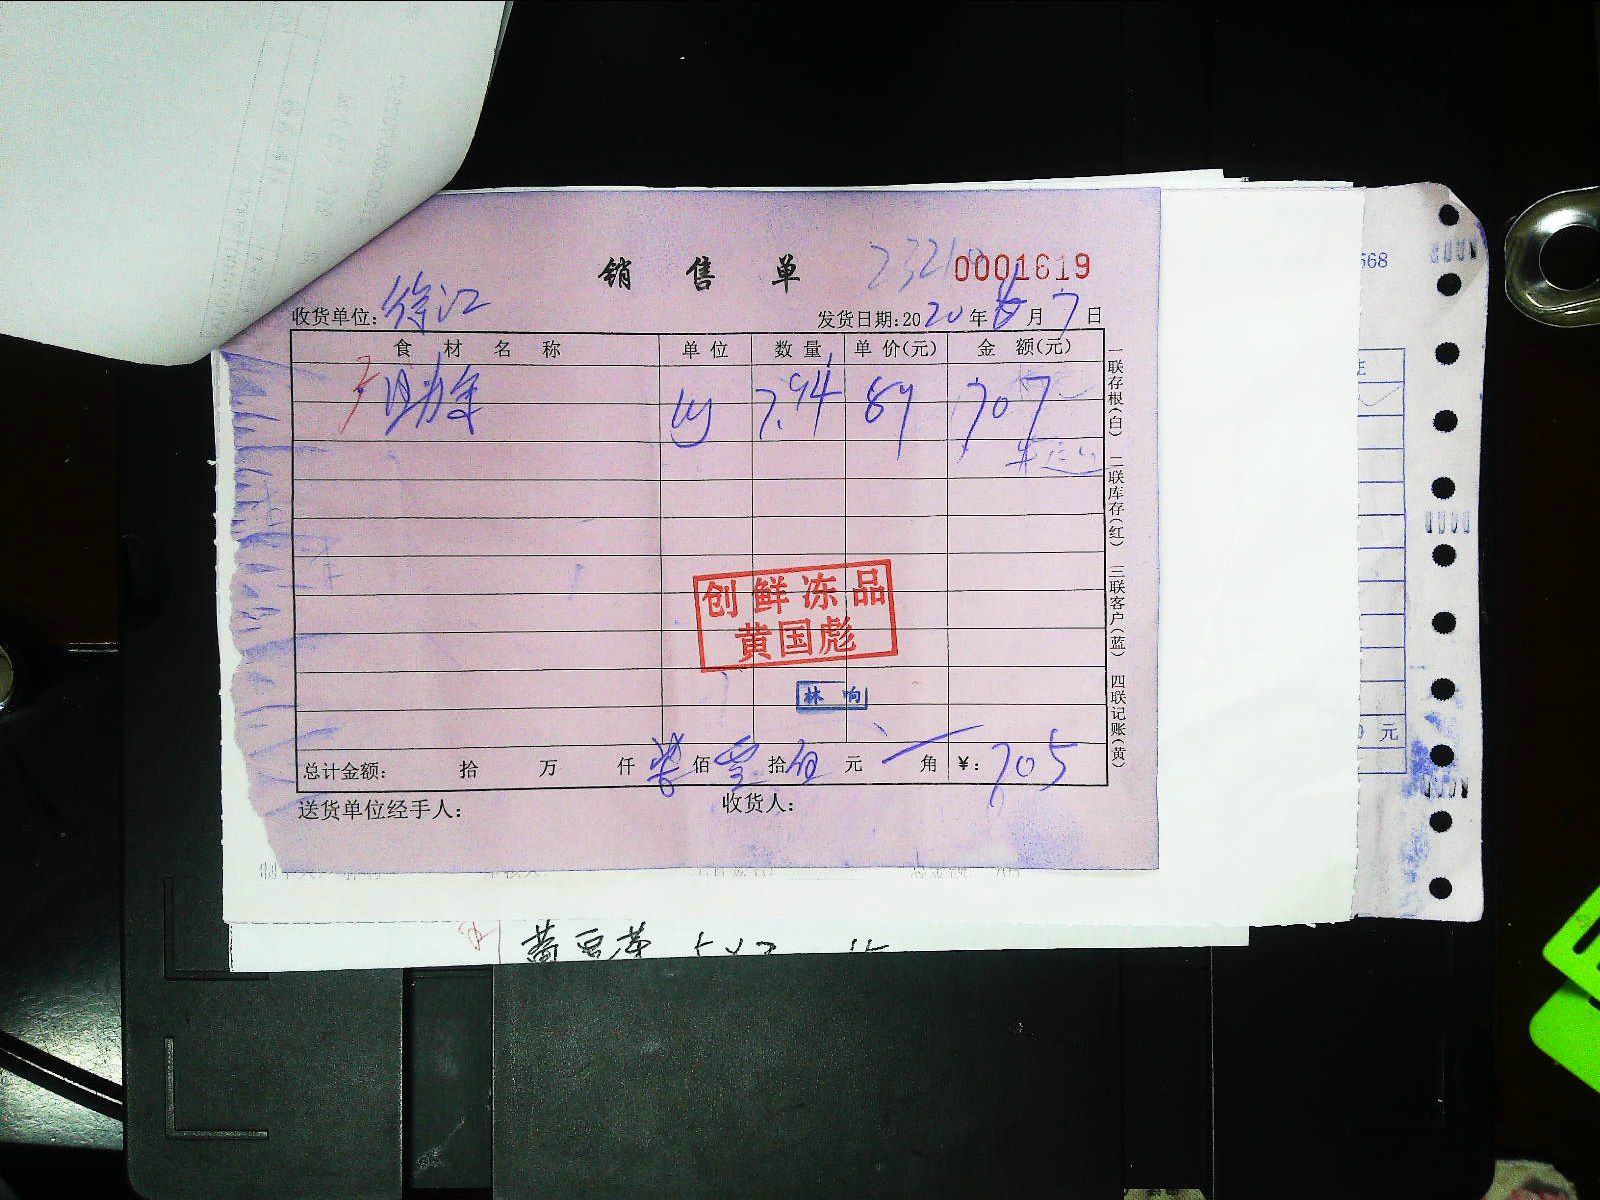 销售单 0001619
收货单位：徐江 发货日期：2020年8月7日
食材名称 单位 数量 单价（元） 金额（元）
7.94 89 707
创鲜冻品
黄国彪
林响
总计金额： 拾 万 仟 柒佰 零拾 伍元 角 ¥：705
送货单位经手人： 收货人：
一联存根（白） 二联库存（红） 三联客户（蓝） 四联记账（黄）
668
元
黄豆芽